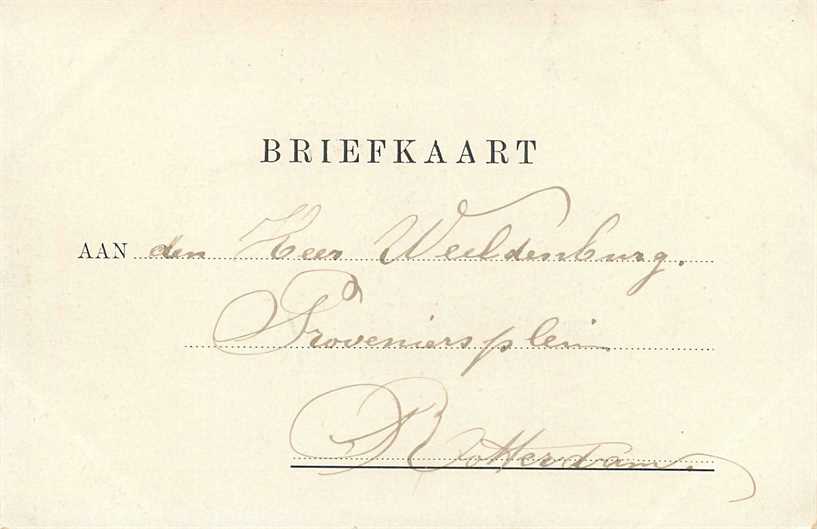 BRIEFKAART
AAN den Heer Weeldenburg.
Proveniersplein
Rotterdam.